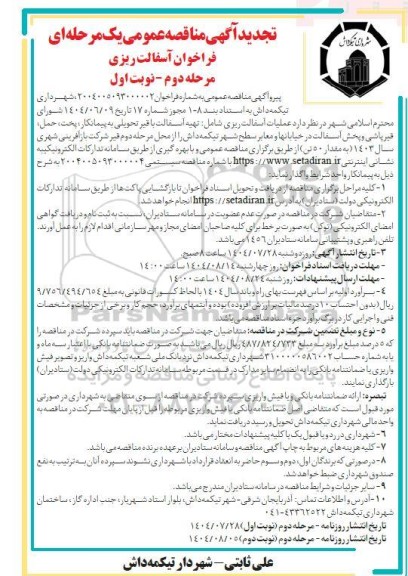 تجدید آگهی مناقصه عمومی یک مرحله‌ای
فراخوان آسفالت ریزی
مرحله دوم - نوبت اول
پیرو آگهی مناقصه عمومی به شماره فراخوان ۲۰۰۴۰۰۵۰۹۳۰۰۰۰۰۲، شهرداری
تیکمه‌داش به استناد بند ۸-۱ مجوز شماره ۱۷ تاریخ ۱۴۰۴/۰۶/۰۹ شورای
محترم اسلامی شهر در نظر دارد عملیات آسفالت ریزی شامل: تهیه آسفالت با قیر تحویلی به پیمانکار، پخت، حمل،
قیرپاشی و پخش آسفالت در خیابانها و معابر سطح شهر تیکمه‌داش را از محل مرحله دوم قیر شرکت بازآفرینی شهری
سال ۱۴۰۳ (به مقدار ۵۰۰ تن) از طریق برگزاری مناقصه عمومی و با بهره گیری از طریق سامانه تدارکات الکترونیکی به
نشانی اینترنتی https://www.setadiran.ir با شماره مناقصه سیستمی ۲۰۰۴۰۰۵۰۹۳۰۰۰۰۰۴ به شرح
ذیل به پیمانکار واجد شرایط واگذار نماید:
۱- کلیه مراحل برگزاری مناقصه از دریافت و تحویل اسناد فراخوان تا بازگشایی پاکت ها از طریق سامانه تدارکات
الکترونیکی دولت (ستاد ایران) به آدرس https://setadiran.ir انجام خواهد شد.
۲- متقاضیان شرکت در مناقصه در صورت عدم عضویت در سامانه ستاد ایران، نسبت به ثبت نام و دریافت گواهی
امضای الکترونیکی (توکن) به صورت بر خط برای کلیه صاحبان امضای مجاز و مهر سازمانی اقدام لازم را به عمل آورند.
تلفن راهبری و پشتیبانی سامانه ستاد ایران ۱۴۵۶ می‌باشد.
۳- تاریخ انتشار آگهی: روز دوشنبه ۱۴۰۴/۰۷/۲۸ ساعت ۸ صبح
- مهلت دریافت اسناد فراخوان: روز چهارشنبه ۱۴۰۴/۰۸/۱۴ ساعت ۱۴:۰۰
- مهلت ارسال پیشنهادات: روز شنبه ۱۴۰۴/۰۸/۲۴ ساعت ۱۴:۰۰
۴- برآورد اولیه بر اساس فهرست بهای راه و باند سال ۱۴۰۴ با لحاظ کسورات قانونی به مبلغ ۹/۷۵۶/۴۹۴/۶۵۴
ریال (بدون احتساب ۱۰ درصد مالیات بر ارزش افزوده) بوده و آنتنهای برآورد، حجم کار و برخی از جزئیات و مشخصات
فنی و اجرایی کار در برگ برآورد جزء اسناد مناقصه می‌باشد.
۵- نوع و مبلغ تضمین شرکت در مناقصه: متقاضیان جهت شرکت در مناقصه باید سپرده شرکت در مناقصه را
که ۵ درصد مبلغ برآورد به مبلغ ۴۸۷/۸۲۴/۷۳۳ ریال می‌باشد به صورت ضمانتنامه بانکی با اعتبار سه ماه و
یا به شماره حساب ۳۱۰۰۰۰۰۵۸۶۰۰۲ شهرداری تیکمه‌داش نزد بانک ملی شعبه تیکمه‌داش واریز و تصویر فیش
واریزی یا ضمانتنامه بانکی را به انضمام سایر مدارک در قسمت مربوطه سامانه تدارکات الکترونیکی دولت (ستاد ایران)
بارگذاری نمایند.
تبصره: ارائه ضمانتنامه بانکی و یا فیش واریزی سپرده شرکت در مناقصه از سوی متقاضی به شهرداری در صورتی
مورد قبول است که متقاضی اصل ضمانتنامه بانکی یا فیش واریزی مربوطه را قبل از پایان مهلت شرکت در مناقصه به
واحد مالی شهرداری تیکمه‌داش تحویل و رسید دریافت نماید.
۶- شهرداری در رد و یا قبول یک یا کلیه پیشنهادات مختار می‌باشد.
۷- کلیه هزینه های مربوط به چاپ آگهی مناقصه و سامانه ستاد ایران بر عهده برنده مناقصه می‌باشد.
۸- در صورتی که برندگان اول، دوم و سوم حاضر به انعقاد قرارداد با شهرداری نشوند سپرده آنان به ترتیب به نفع
صندوق شهرداری ضبط خواهد شد.
۹- سایر جزئیات و شرایط مناقصه در سامانه ستاد ایران مندرج می‌باشد.
۱۰- آدرس و اطلاعات تماس: آذربایجان شرقی- شهر تیکمه‌داش، بلوار استاد شهریار، جنب اداره گاز، ساختمان
شهرداری تیکمه‌داش ۴۳۳۶۲۵۲۲-۰۴۱
تاریخ انتشار روزنامه - مرحله دوم (نوبت اول) ۱۴۰۴/۰۷/۲۸
تاریخ انتشار روزنامه - مرحله دوم (نوبت دوم) ۱۴۰۴/۰۸/۰۵
علی ثابتی - شهردار تیکمه‌داش